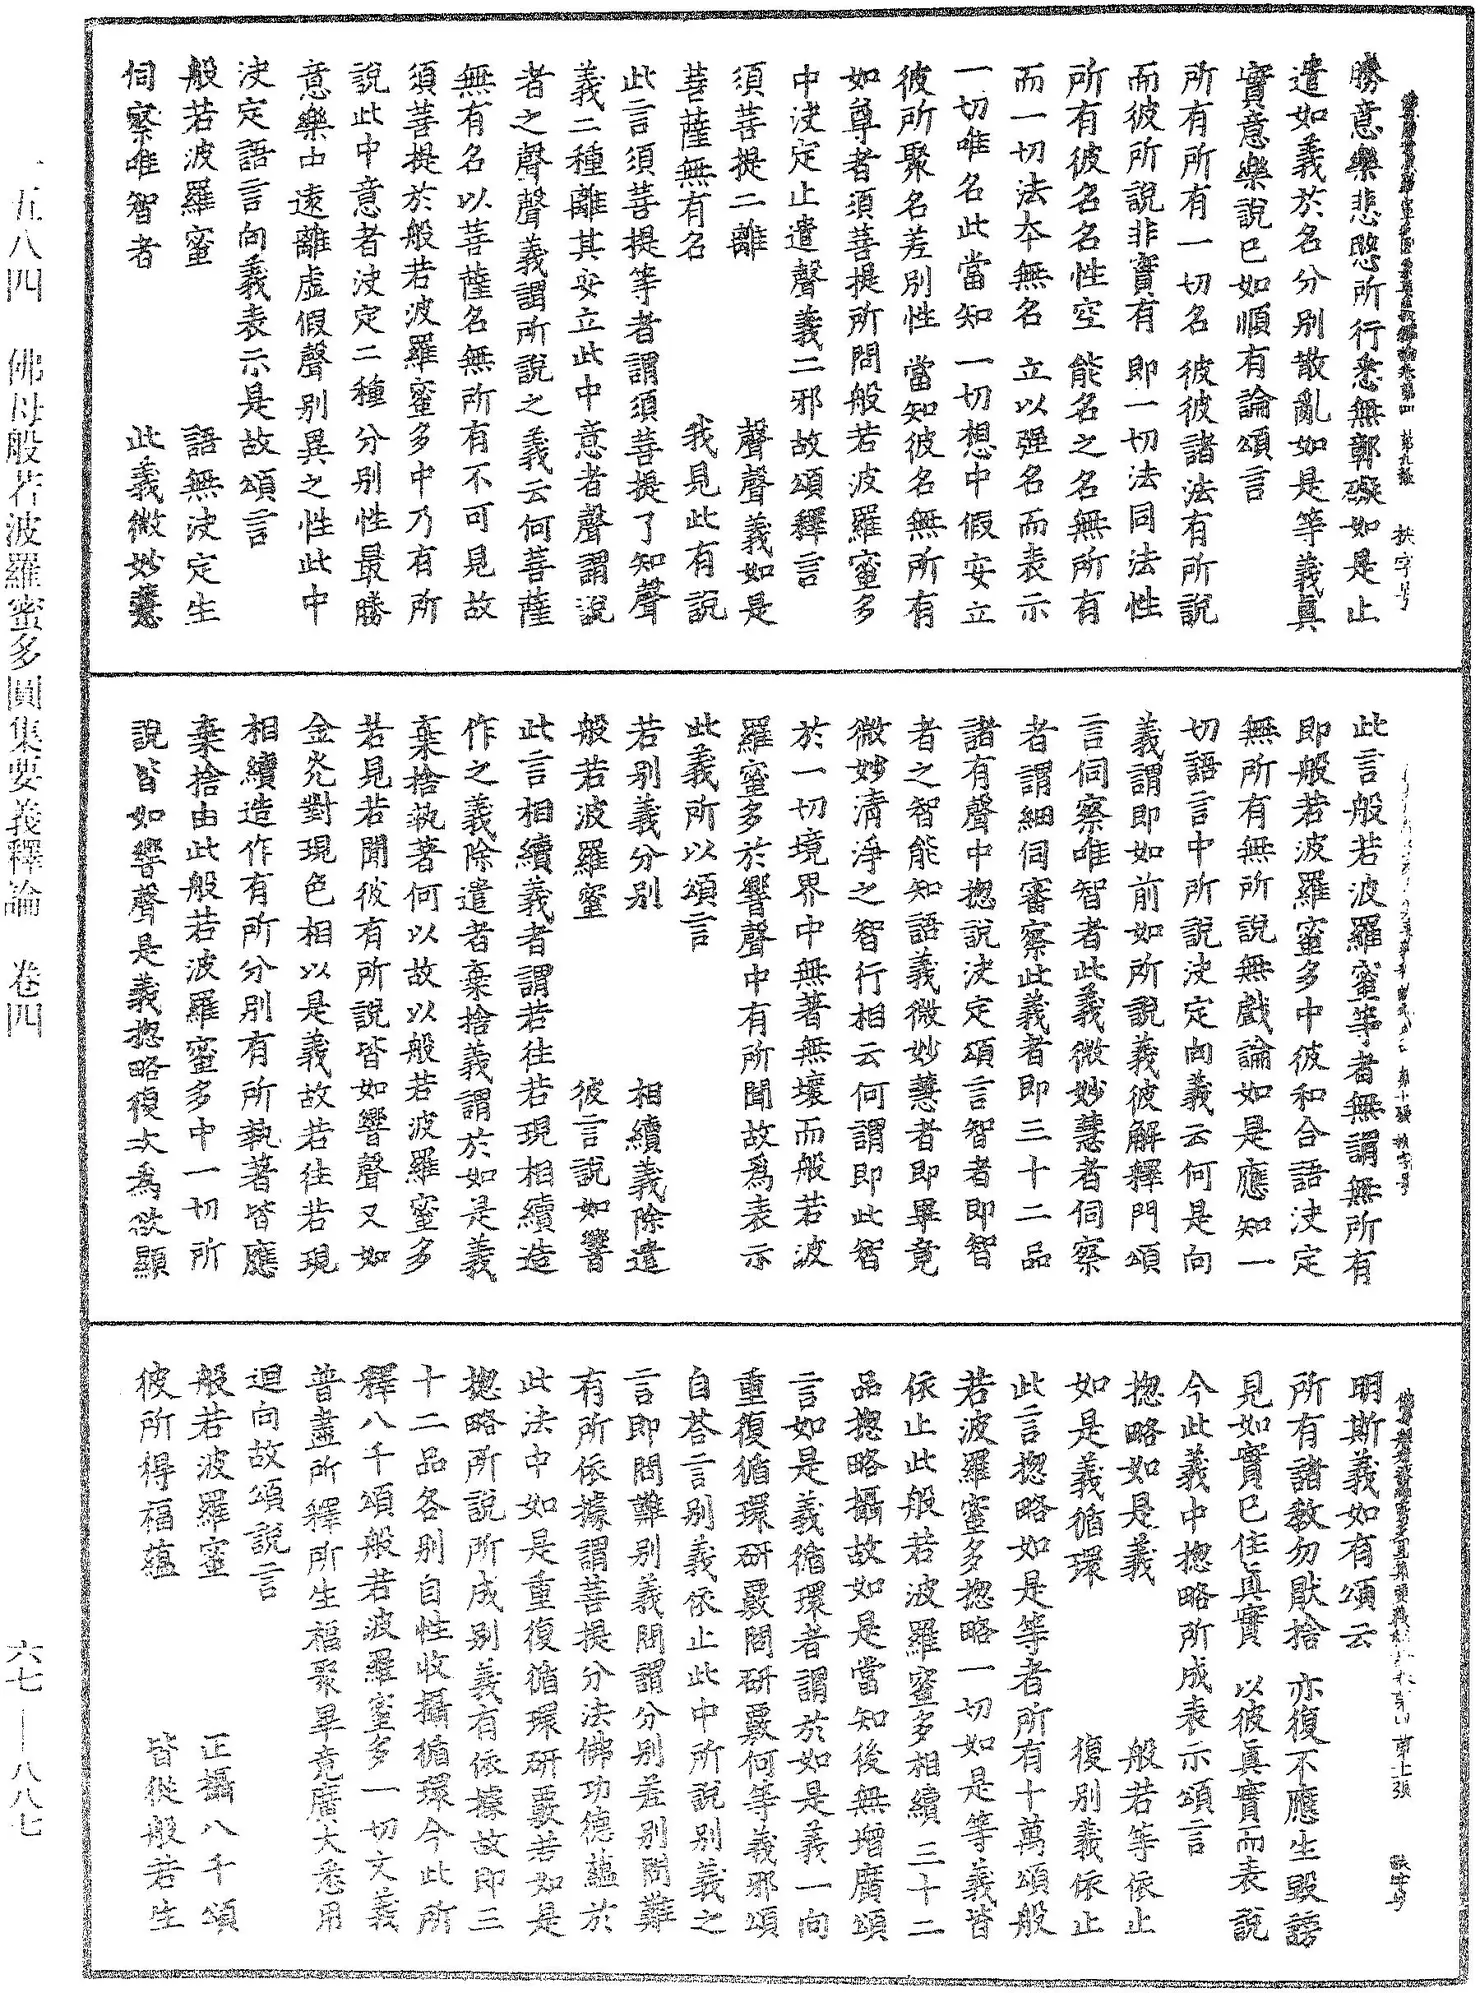 勝意樂悲愍所行悉無鄣礙如是止
遣如義於名分別散亂如是等義真
實意樂說已如順有論頌言
所有所有一切名 彼彼諸法有所說
而彼所說非實有 即一切法同法性
所有彼名名性空 能名之名無所有
而一切法本無名 立以强名而表示
一切唯名此當知 一切想中假安立
彼所聚名差別性 當知彼名無所有
如尊者須菩提所問般若波羅蜜多
中决定止遣聲義二邪故頌釋言
須菩提二離 聲聲義如是
菩薩無有名 我見此有說
此言須菩提等者謂須菩提了知聲
義二種離其安立此中意者聲謂說
者之聲聲義謂所說之義云何菩薩
無有名以菩薩名無所有不可見故
須菩提於般若波羅蜜多中乃有所
說此中意者决定二種分別性最勝
意樂由遠離虛假聲別異之性此中
决定語言向義表示是故頌言
般若波羅蜜 語無决定生
伺察唯智者 此義微妙慧
此言般若波羅蜜等者無謂無所有
即般若波羅蜜多中彼和合語决定
無所有無所說無戲論如是應知一
切語言中所說决定向義云何是向
義謂即如前如所說義彼解釋門頌
言伺察唯智者此義微妙慧者伺察
者謂細伺審察此義者即三十二品
諸有聲中揔說决定頌言智者即智
者之智能知語義微妙慧者即畢竟
微妙清淨之智行相云何謂即此智
於一切境界中無著無壞而般若波
羅蜜多於響聲中有所聞故爲表示
此義所以頌言
若別義分別 相續義除遣
般若波羅蜜 彼言說如響
此言相續義者謂若往若現相續造
作之義除遣者棄捨義謂於如是義
棄捨執著何以故以般若波羅蜜多
若見若聞彼有所說皆如響聲又如
金光對現色相以是義故若往若現
相續造作有所分別有所執著皆應
棄捨由此般若波羅蜜多中一切所
說皆如響聲是義揔略復次爲欲顯
明斯義如有頌云
所有諸教勿猒捨 亦復不應生毀謗
見如實已住真實 以彼真實而表說
今此義中揔略所成表示頌言
揔略如是義 般若等依止
如是義循環 復別義依止
此言揔略如是等者所有十萬頌般
若波羅蜜多揔略一切如是等義皆
依止此般若波羅蜜多相續三十二
品揔略攝故如是當知後無增廣頌
言如是義循環者謂於如是義一向
重復循環研覈問研覈何等義邪頌
自荅言別義依止此中所說別義之
言即問難別義問謂分別差別問難
有所依據謂菩提分法佛功德蘊於
此法中如是重復循環研覈若如是
揔略所說所成別義有依據故即三
十二品各別自性收攝循環今此所
釋八千頌般若波羅蜜多一切文義
普盡所釋所生福聚畢竟廣大悉用
迴向故頌說言
般若波羅蜜 正攝八千頌
彼所得福蘊 皆從般若生
一五八四 佛母般若波羅蜜多圓集要義釋論 卷四 六七—八八七